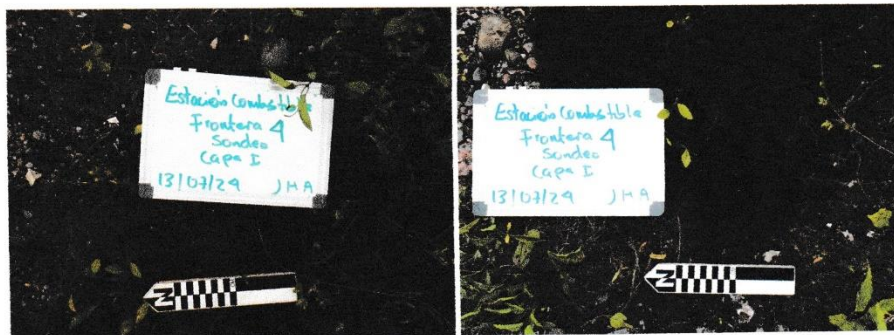 Estación Combustible
Frontera 4
Sondeo
Capa I
13/07/24 JHA
N
Estación Combustible
Frontera 4
Sondeo
Capa I
13/07/24 JHA
N